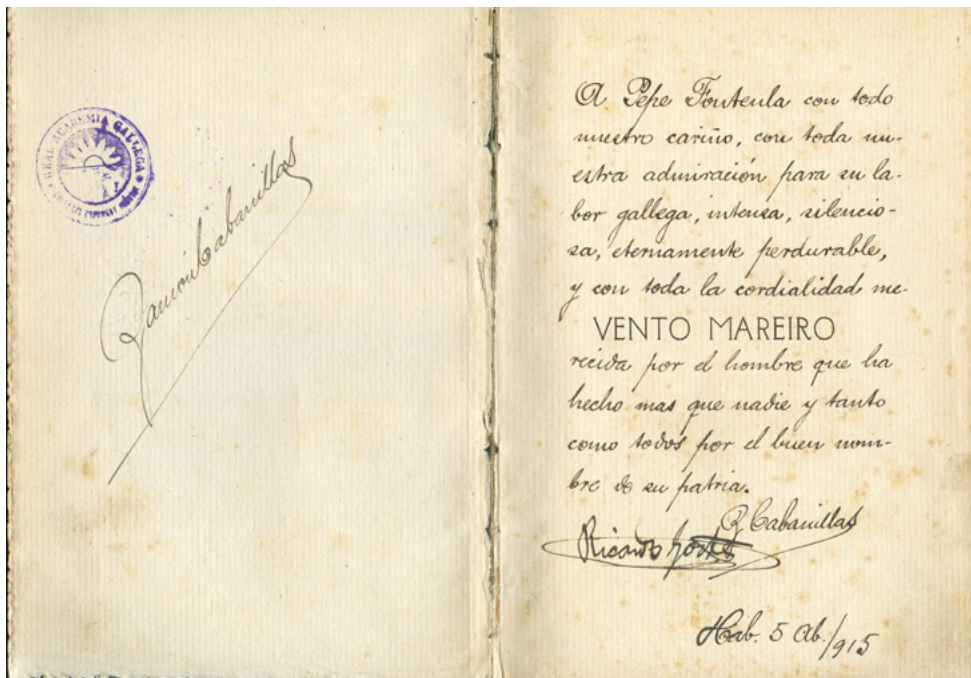 REAL ACADEMIA GALLEGA
Ramón Cabanillas
A Pepe Fontenla con todo
nuestro cariño, con toda nu-
estra admiración para su la-
bor gallega, intensa, silencio-
sa, eternamente perdurable,
y con toda la cordialidad me-
VENTO MAREIRO
recida por el hombre que ha
hecho mas que nadie y tanto
como todos por el buen nom-
bre de su patria.
R Cabanillas
Ricardo
Hab. 5 Ab./915